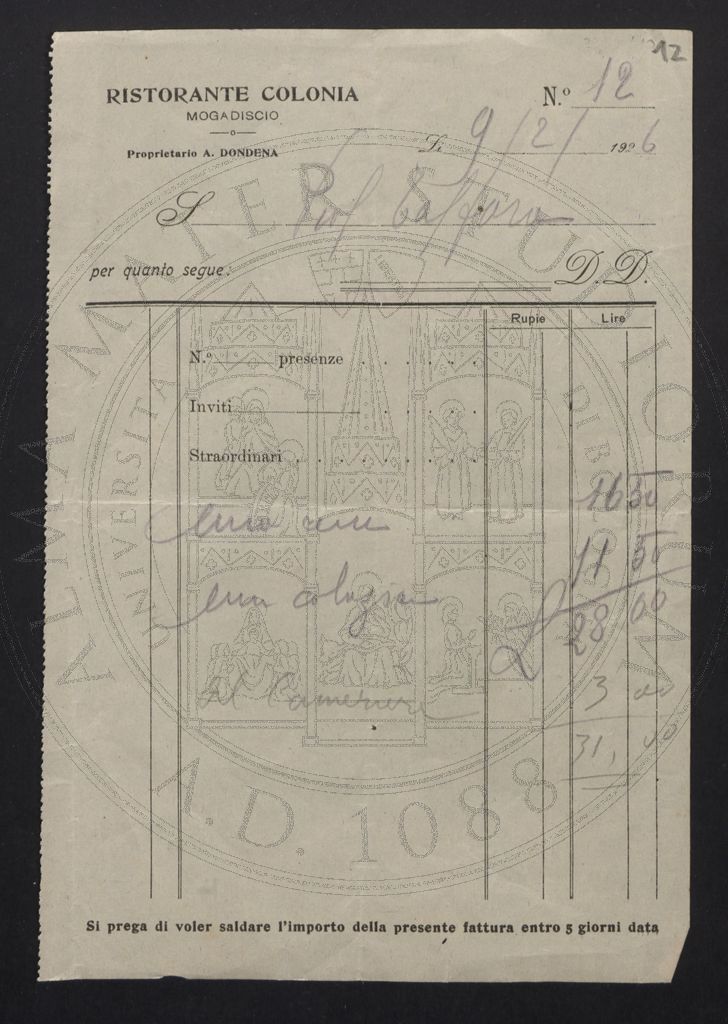 12
RISTORANTE COLONIA
MOGADISCIO
Proprietario A. DONDENA
N.º 12
Lì 9/2/1926
S Prof
per quanto segue: D. D.
Rupie Lire
N.º presenze
Inviti
Straordinari
una 16 50
una colazione 11 50
L 28 00
Al Cameriere 3 00
31, 00
Si prega di voler saldare l'importo della presente fattura entro 5 giorni data
ALMA MATER STUDIORUM
UNIVERSITA DI BOLOGNA
A.D. 1088